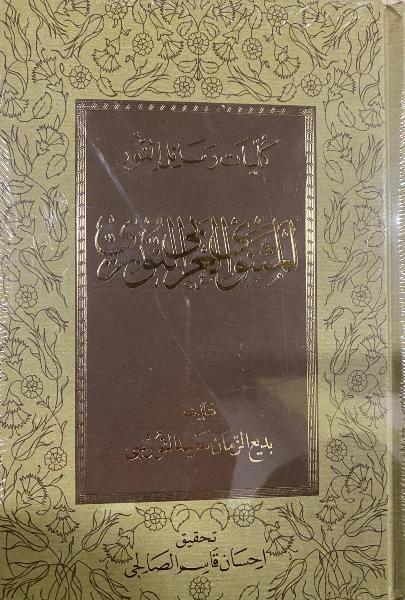 كليات رسائل النور
المثنوي العربي النوري
تأليف
بديع الزمان سعيد النورسي
تحقيق
احسان قاسم الصالحي